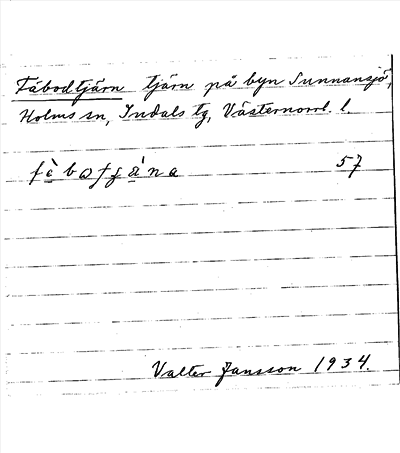 Täbodtjärn tjärn på byn Sunnansjö,
Holms sn, Indals tg, Västernorrl. l.
57
Valter Jansson 1934.